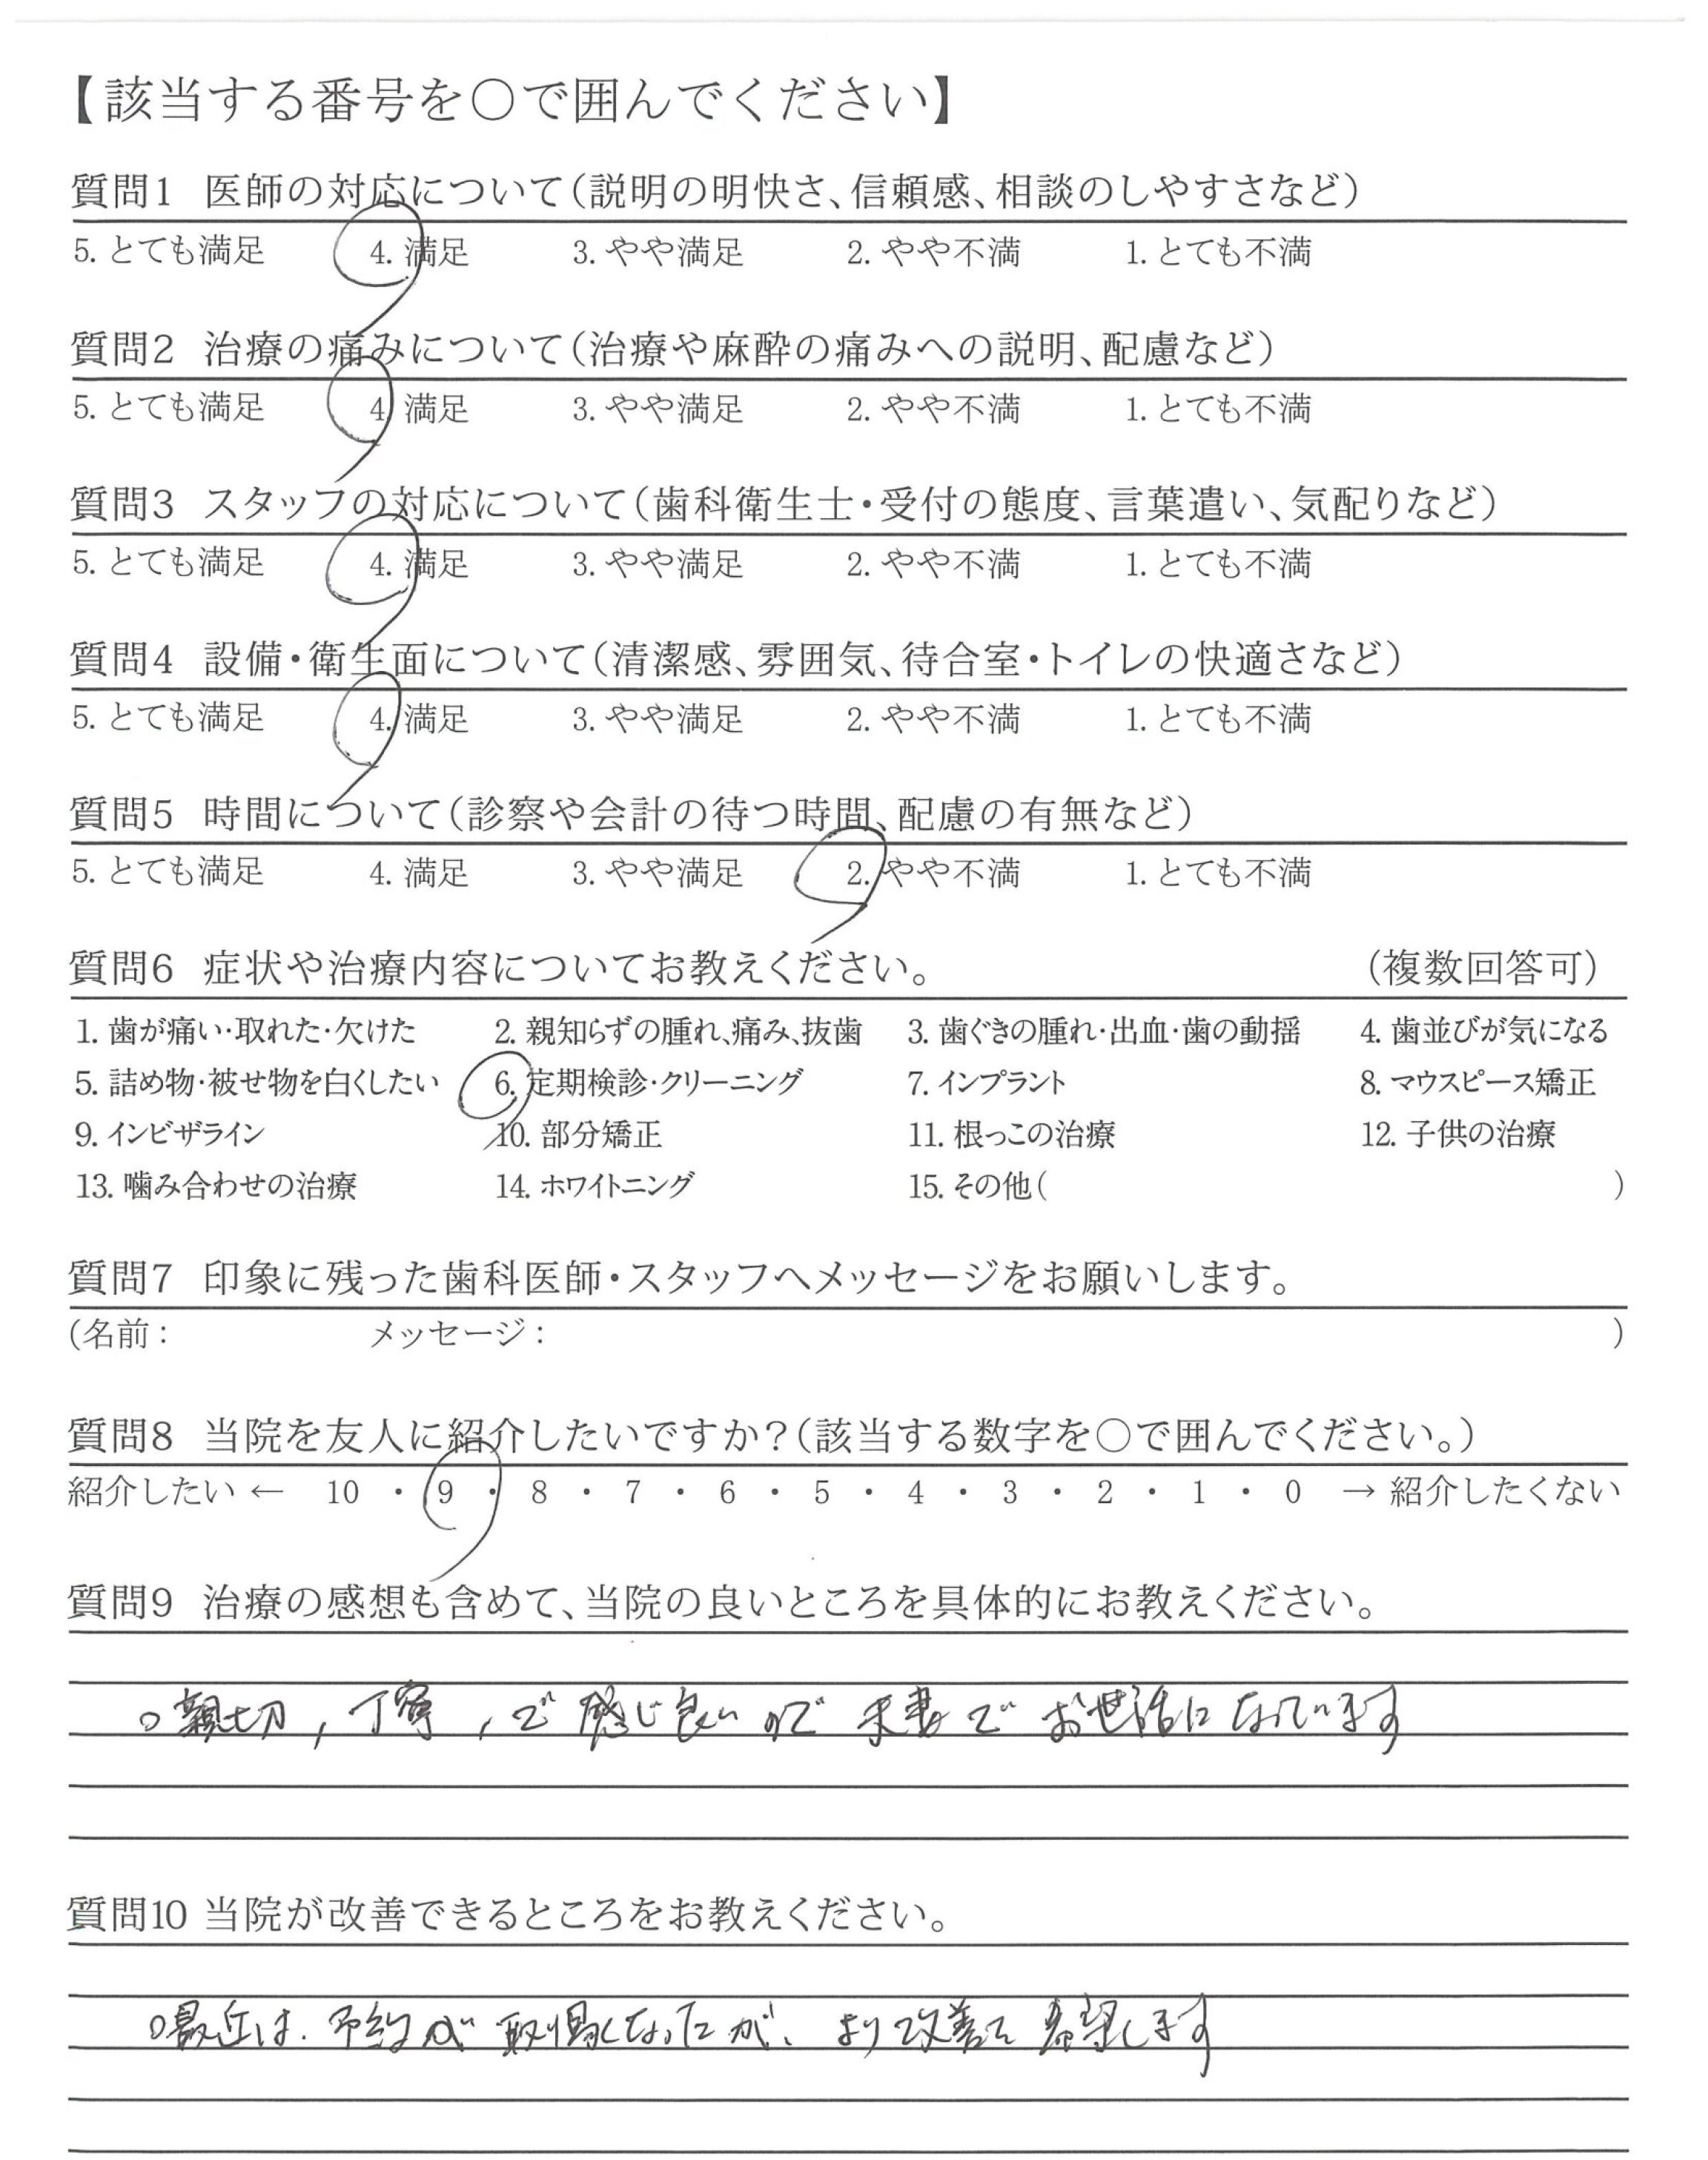 【該当する番号を○で囲んでください】
質問1 医師の対応について(説明の明快さ、信頼感、相談のしやすさなど)
5. とても満足 4. 満足 3. やや満足 2. やや不満 1. とても不満
質問2 治療の痛みについて(治療や麻酔の痛みへの説明、配慮など)
5. とても満足 4. 満足 3. やや満足 2. やや不満 1. とても不満
質問3 スタッフの対応について(歯科衛生士・受付の態度、言葉遣い、気配りなど)
5. とても満足 4. 満足 3. やや満足 2. やや不満 1. とても不満
質問4 設備・衛生面について(清潔感、雰囲気、待合室・トイレの快適さなど)
5. とても満足 4. 満足 3. やや満足 2. やや不満 1. とても不満
質問5 時間について(診察や会計の待つ時間、配慮の有無など)
5. とても満足 4. 満足 3. やや満足 2. やや不満 1. とても不満
質問6 症状や治療内容についてお教えください。 (複数回答可)
1. 歯が痛い・取れた・欠けた 2. 親知らずの腫れ、痛み、抜歯 3. 歯ぐきの腫れ・出血・歯の動揺 4. 歯並びが気になる
5. 詰め物・被せ物を白くしたい 6. 定期検診・クリーニング 7. インプラント 8. マウスピース矯正
9. インビザライン 10. 部分矯正 11. 根っこの治療 12. 子供の治療
13. 噛み合わせの治療 14. ホワイトニング 15. その他( )
質問7 印象に残った歯科医師・スタッフへメッセージをお願いします。
(名前: メッセージ: )
質問8 当院を友人に紹介したいですか?(該当する数字を○で囲んでください。)
紹介したい ← 10 ・ 9 ・ 8 ・ 7 ・ 6 ・ 5 ・ 4 ・ 3 ・ 2 ・ 1 ・ 0 → 紹介したくない
質問9 治療の感想も含めて、当院の良いところを具体的にお教えください。
○親切, 丁寧, で感じ良いので夫妻でお世話になっています
質問10 当院が改善できるところをお教えください。
○最近は、予約が取り易くなったが、より改善を希望します